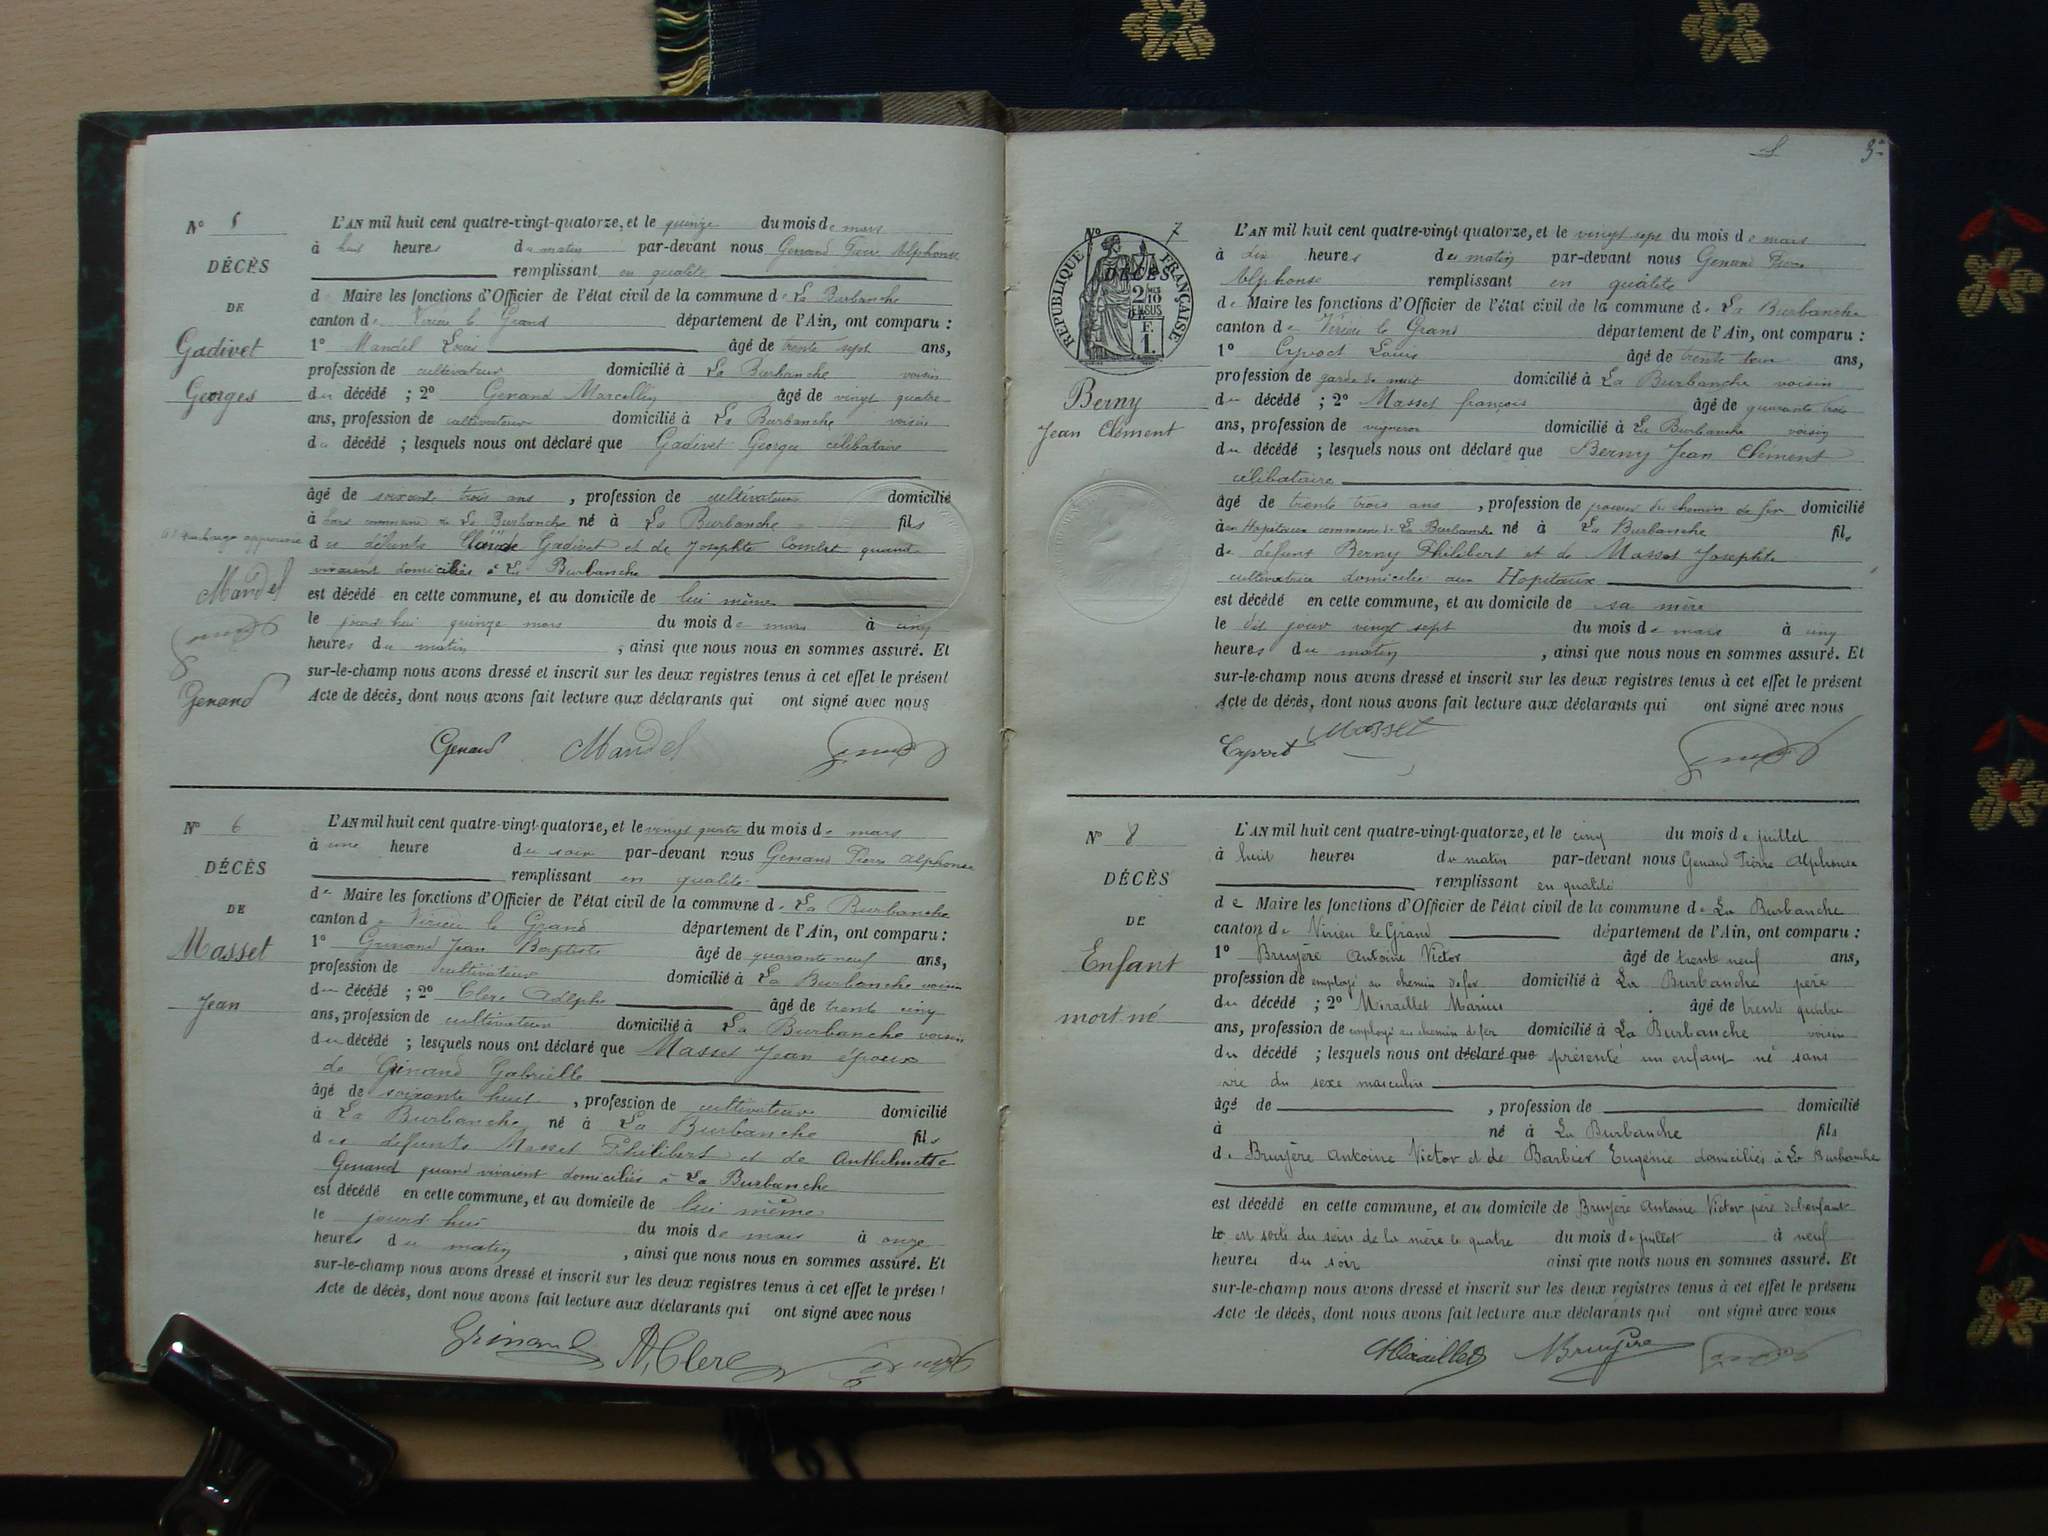 N° 5
DÉCÈS
DE
Gadivet
Georges
L'AN mil huit cent quatre-vingt-quatorze, et le quinze du mois de mars
à huit heures du matin par-devant nous Genand Pierre Alphonse
remplissant en qualité
de Maire les fonctions d'Officier de l'état civil de la commune de La Burbanche
canton de Virieu le Grand département de l'Ain, ont comparu :
1° Mandel Louis âgé de trente sept ans,
profession de cultivateur domicilié à La Burbanche voisin
du décédé ; 2° Genand Marcellin âgé de vingt quatre
ans, profession de cultivateur domicilié à La Burbanche voisin
du décédé ; lesquels nous ont déclaré que Gadivet Georges célibataire
âgé de soixante trois ans, profession de cultivateur domicilié
à hors commune de La Burbanche né à La Burbanche fils
des défunts Claude Gadivet et de Josephte Combet quand
vivaient domiciliés à La Burbanche
est décédé en cette commune, et au domicile de lui même
le jourd'hui quinze mars du mois de mars à cinq
heures du matin, ainsi que nous nous en sommes assuré. Et
sur-le-champ nous avons dressé et inscrit sur les deux registres tenus à cet effet le présent
Acte de décès, dont nous avons fait lecture aux déclarants qui ont signé avec nous
surcharge approuvée
Mandel
Genand
Genand Mandel Genand
N° 6
DÉCÈS
DE
Masset
Jean
L'AN mil huit cent quatre-vingt-quatorze, et le vingt quatre du mois de mars
à une heure du soir par-devant nous Genand Pierre Alphonse
remplissant en qualité
de Maire les fonctions d'Officier de l'état civil de la commune de La Burbanche
canton de Virieu le Grand département de l'Ain, ont comparu :
1° Grinand Jean Baptiste âgé de quarante neuf ans,
profession de cultivateur domicilié à La Burbanche voisin
du décédé ; 2° Clerc Adolphe âgé de trente cinq
ans, profession de cultivateur domicilié à La Burbanche voisin
du décédé ; lesquels nous ont déclaré que Masset Jean époux
de Grinand Gabrielle
âgé de soixante huit, profession de cultivateur domicilié
à La Burbanche né à La Burbanche fils
des défunts Masset Philibert et de Anthelmette
Genand quand vivaient domiciliés à La Burbanche
est décédé en cette commune, et au domicile de lui même
le jourd'hui du mois de mars à onze
heures du matin, ainsi que nous nous en sommes assuré. Et
sur-le-champ nous avons dressé et inscrit sur les deux registres tenus à cet effet le présent
Acte de décès, dont nous avons fait lecture aux déclarants qui ont signé avec nous
Grinand A. Clerc Genand
3
N° 7
RÉPUBLIQUE FRANÇAISE
DÉCÈS
2/10 EN SUS
F. 1.
Berny
Jean Clément
L'AN mil huit cent quatre-vingt-quatorze, et le vingt sept du mois de mars
à dix heures du matin par-devant nous Genand Pierre
Alphonse remplissant en qualité
de Maire les fonctions d'Officier de l'état civil de la commune de La Burbanche
canton de Virieu le Grand département de l'Ain, ont comparu :
1° Cyvoct Louis âgé de trente ans,
profession de garde de nuit domicilié à La Burbanche voisin
du décédé ; 2° Masset françois âgé de quarante trois
ans, profession de vigneron domicilié à La Burbanche voisin
du décédé ; lesquels nous ont déclaré que Berny Jean Clément
célibataire
âgé de trente trois ans, profession de poseur du chemin de fer domicilié
à en Hopitaux commune de La Burbanche né à La Burbanche fils
de défunt Berny Philibert et de Masset Josephte
cultivatrice domicilié aux Hopitaux
est décédé en cette commune, et au domicile de sa mère
le dit jour vingt sept du mois de mars à cinq
heures du matin, ainsi que nous nous en sommes assuré. Et
sur-le-champ nous avons dressé et inscrit sur les deux registres tenus à cet effet le présent
Acte de décès, dont nous avons fait lecture aux déclarants qui ont signé avec nous
Cyvoct Masset Genand
N° 8
DÉCÈS
DE
Enfant
mort né
L'AN mil huit cent quatre-vingt-quatorze, et le cinq du mois de juillet
à huit heures du matin par-devant nous Genand Pierre Alphonse
remplissant en qualité
de Maire les fonctions d'Officier de l'état civil de la commune de La Burbanche
canton de Virieu le Grand département de l'Ain, ont comparu :
1° Bruyère Antoine Victor âgé de trente neuf ans,
profession de employé au chemin de fer domicilié à La Burbanche père
du décédé ; 2° Miraillet Marius âgé de trente quatre
ans, profession de employé au chemin de fer domicilié à La Burbanche voisin
du décédé ; lesquels nous ont déclaré que présenté un enfant né sans
vie du sexe masculin
âgé de , profession de domicilié
à né à La Burbanche fils
de Bruyère Antoine Victor et de Barbier Eugénie domiciliés à La Burbanche
est décédé en cette commune, et au domicile de Bruyère Antoine Victor père de l'enfant
le est sorti du sein de la mère le quatre du mois de juillet à neuf
heures du soir ainsi que nous nous en sommes assuré. Et
sur-le-champ nous avons dressé et inscrit sur les deux registres tenus à cet effet le présent
Acte de décès, dont nous avons fait lecture aux déclarants qui ont signé avec nous
Miraillet Bruyère Genand